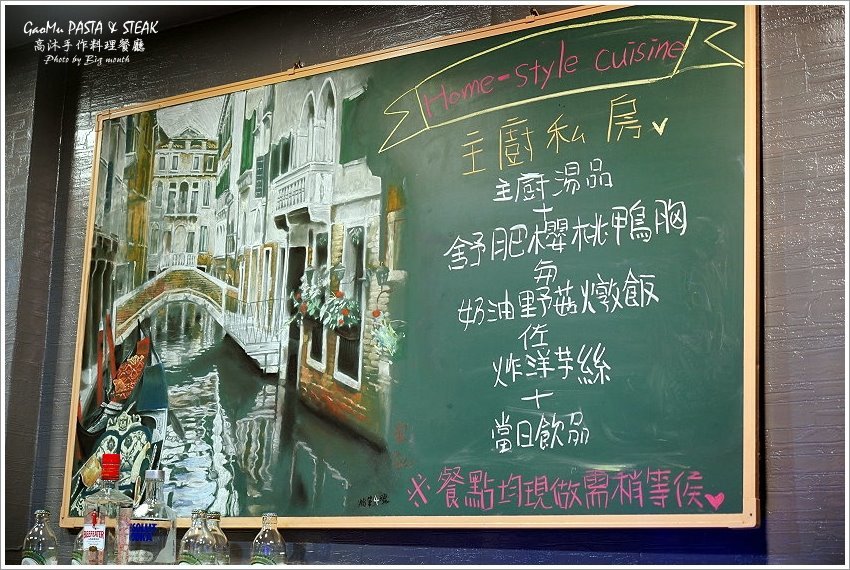 GaoMu PASTA & STEAK
高沐手作料理餐廳
Photo by Big mouth
Home-style cuisine
主廚私房
主廚湯品
+
舒肥櫻桃鴨胸
與
奶油野菇燉飯
佐
炸洋芋絲
+
當日飲品
※餐點均現做需稍等候♥
BEEFEATER
ABSOLUT